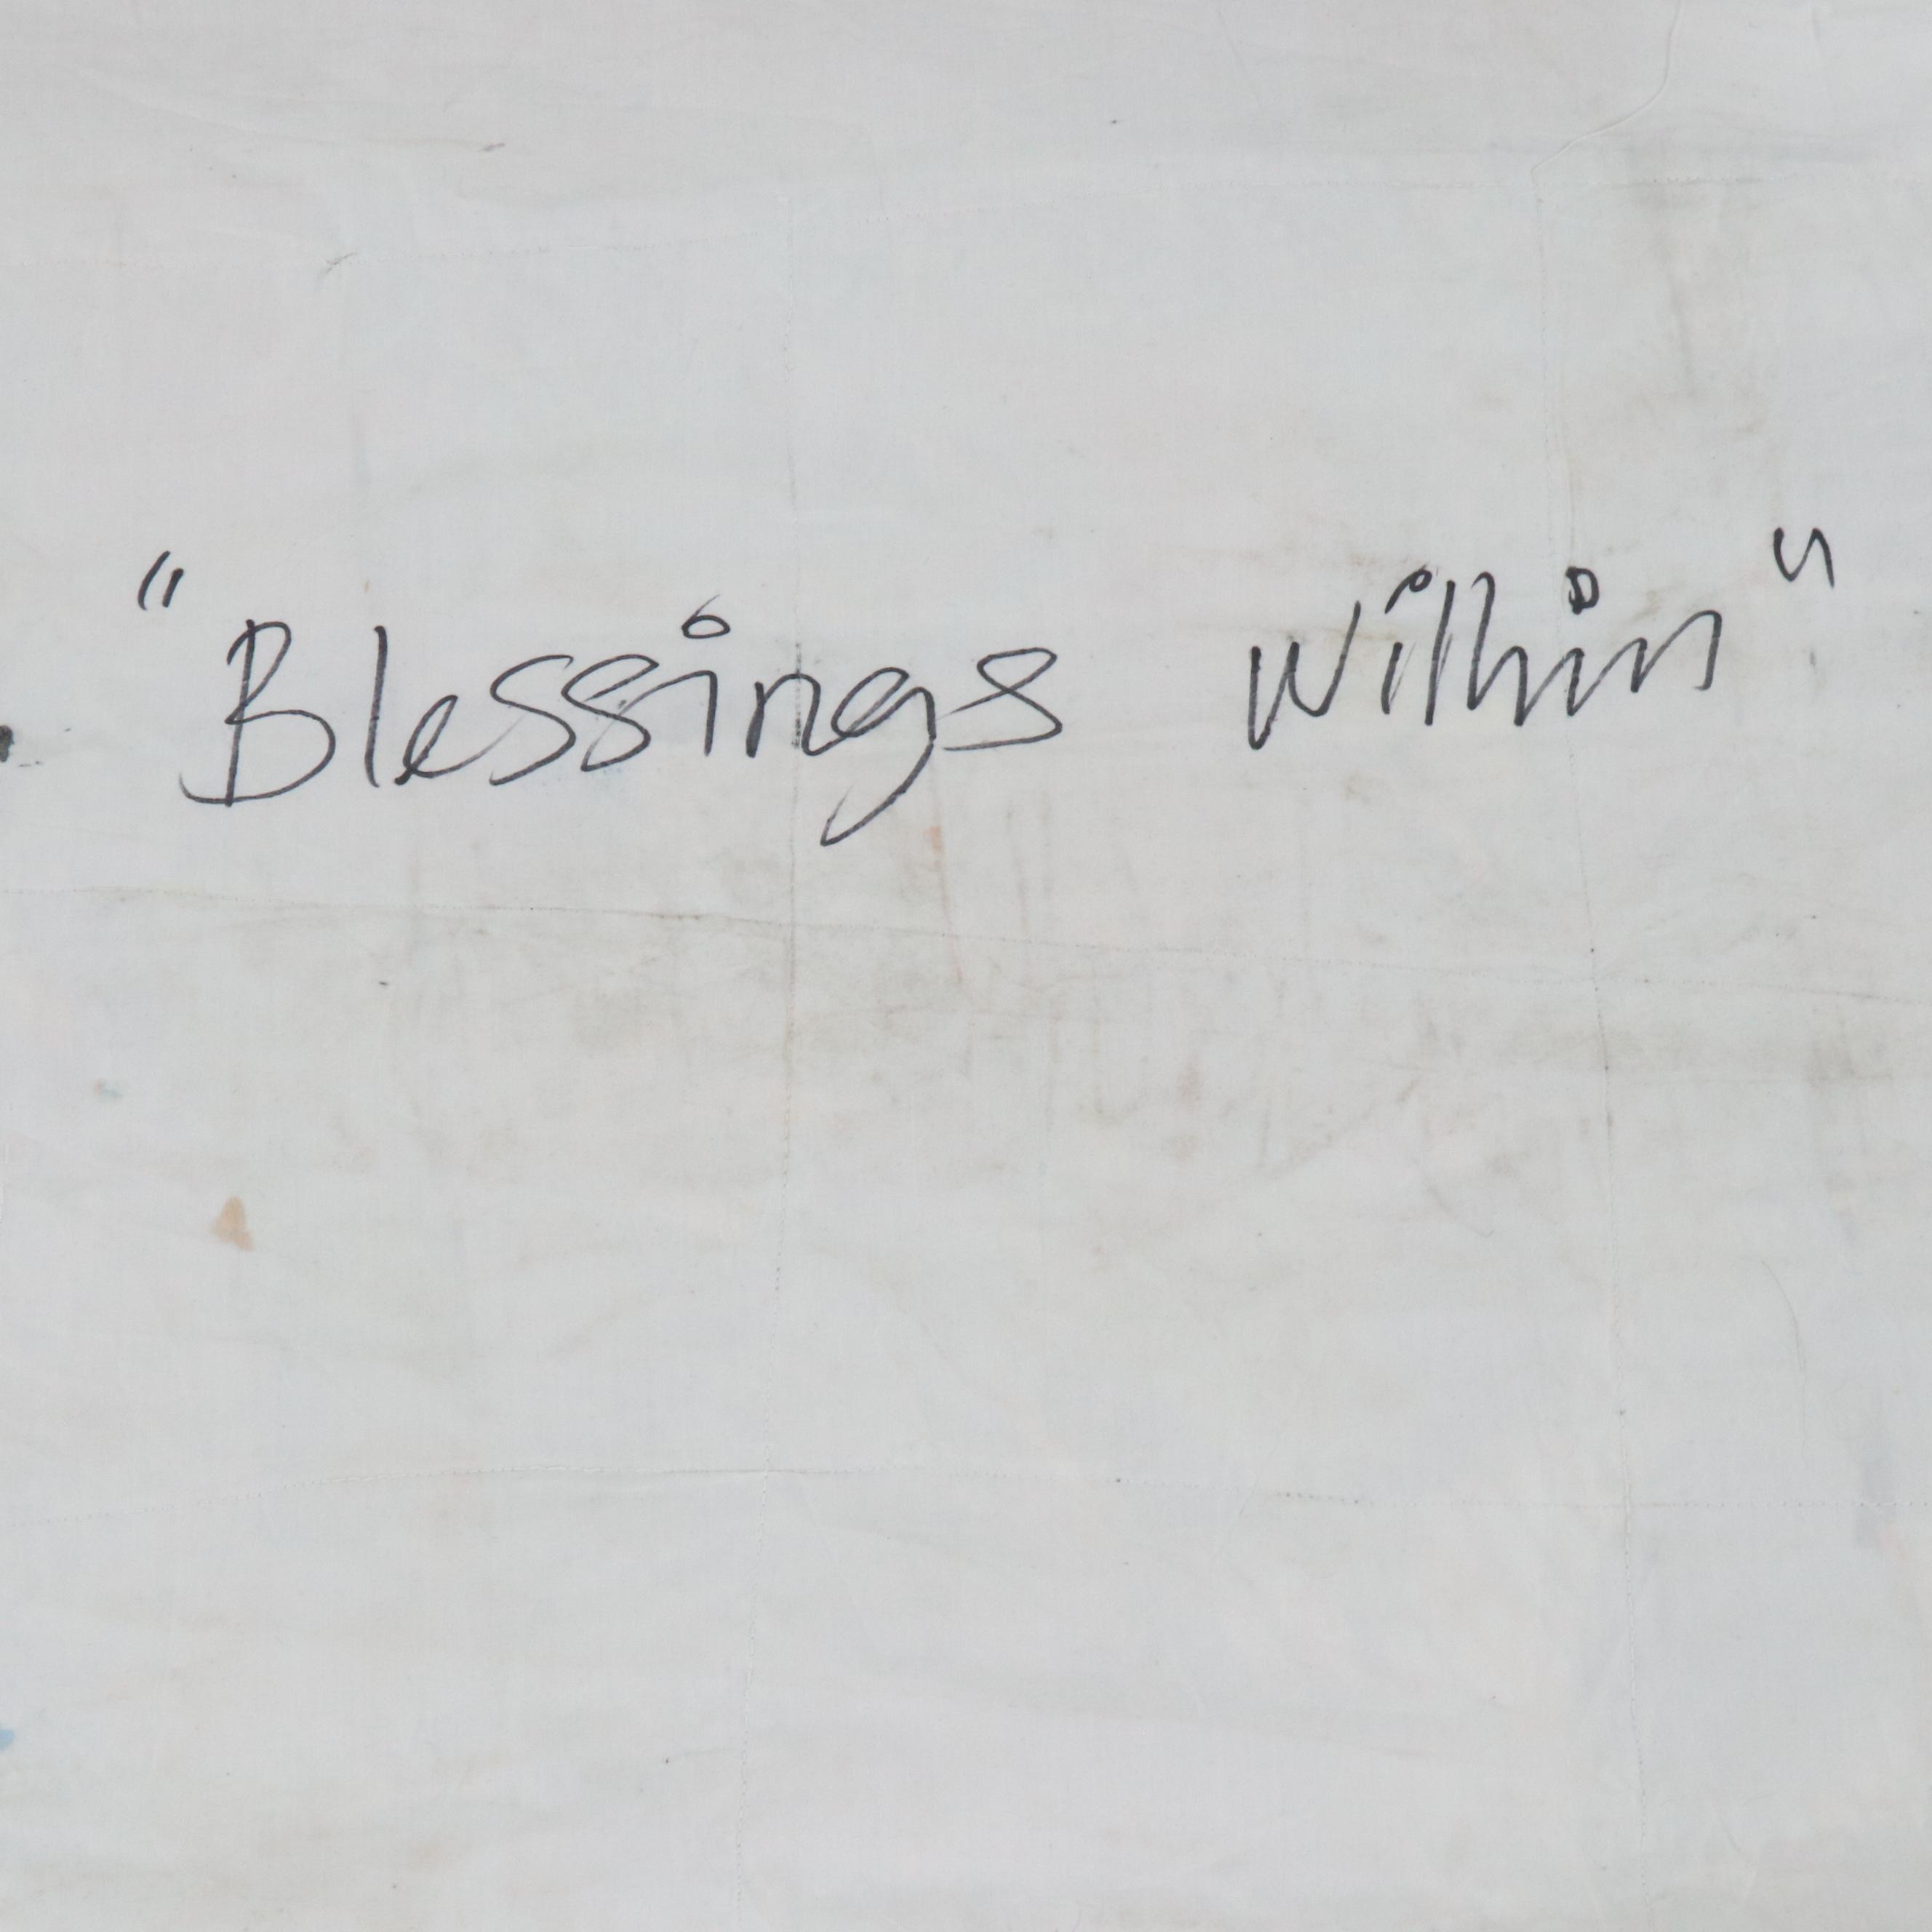 "Blessings Within"